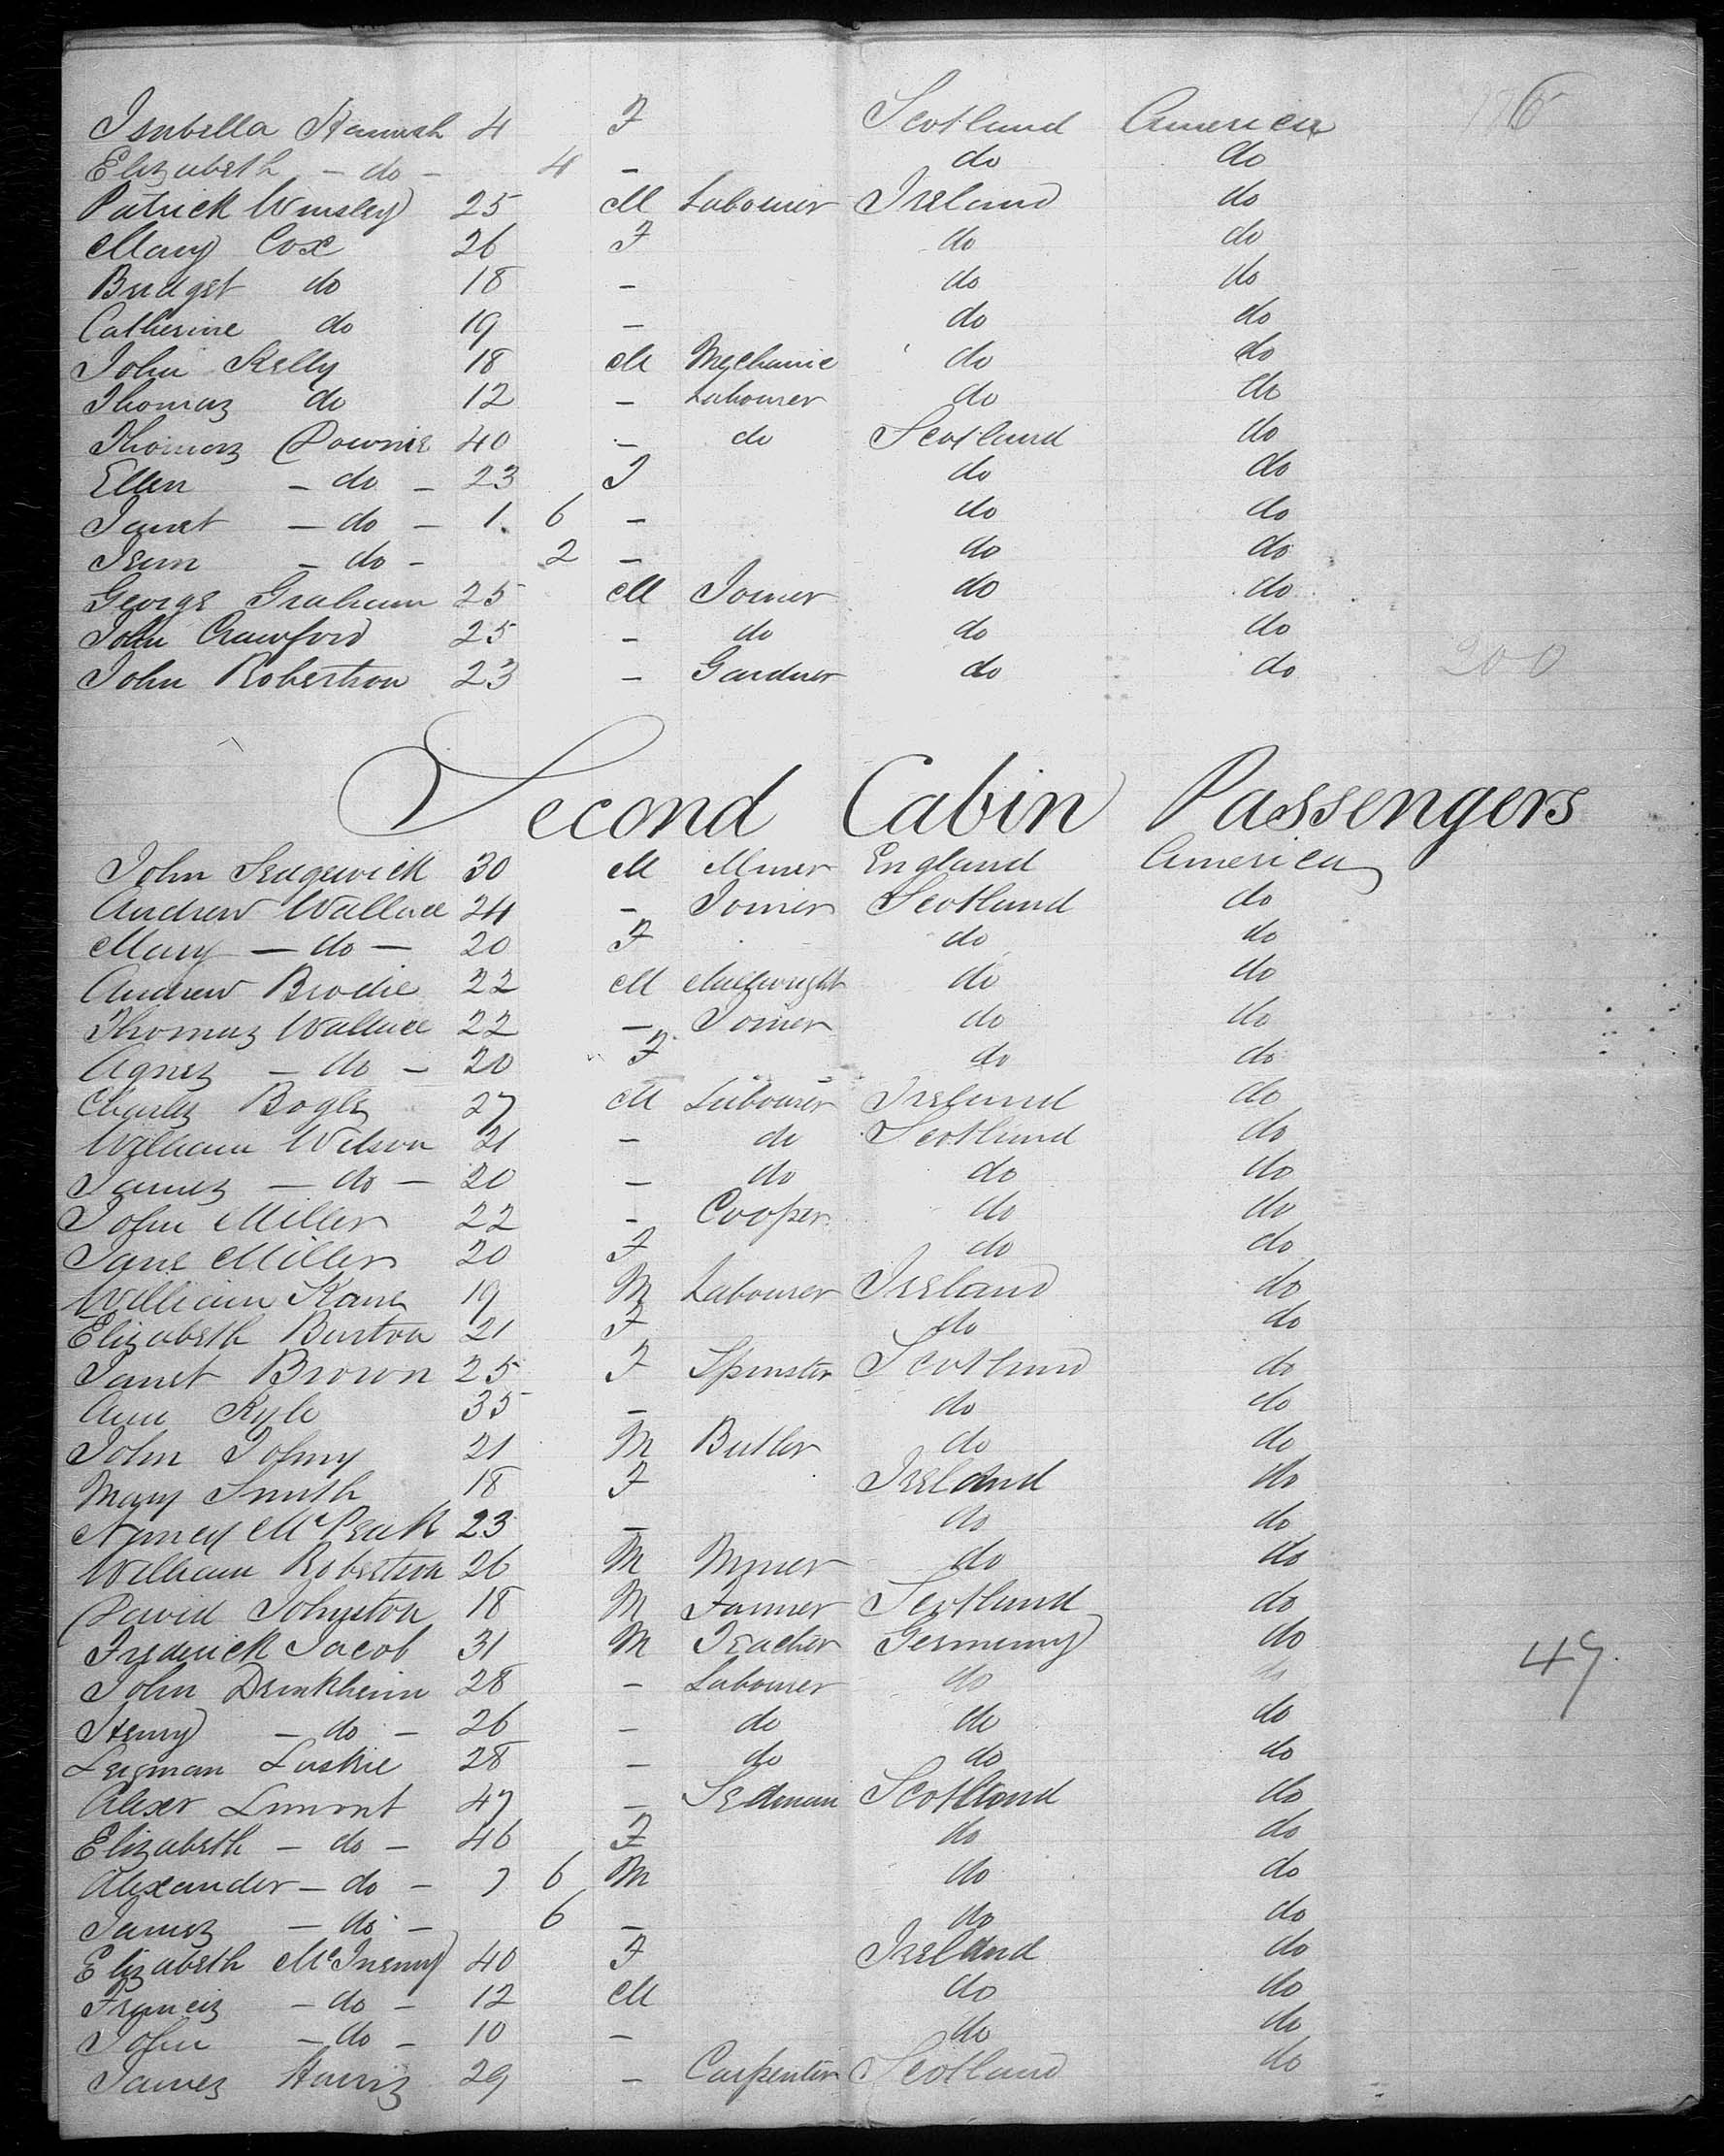 186
Isabella Hannah 4 F Scotland America
Elizabeth - do - 4 - do do
Patrick 25 M Labourer Ireland do
Mary Cox 26 F do do
Bridget do 18 - do do
Catherine do 19 - do do
John Kelly 18 M Mechanic do do
Thomas do 12 - Labourer do do
Thomas Downie 40 - do Scotland do
Ellen - do - 23 F do do
Janet - do - 1 6 - do do
Jean - do - 2 - do do
George Graham 25 M Joiner do do
John Crawford 25 - do do do
John Robertson 23 - Gardner do do 200
Second Cabin Passengers
John Sedgewick 30 M Miner England America
Andrew Wallace 24 - Joiner Scotland do
Mary - do - 20 F do do
Andrew Brodie 22 M Millwright do do
Thomas Wallace 22 - Joiner do do
Agnes - do - 20 F do do
Charles Bogle 27 M Labourer Ireland do
William Wilson 21 - do Scotland do
James - do - 20 - do do do
John Miller 22 - Cooper do do
Jane Miller 20 F do do
William Kane 19 M Labourer Ireland do
Elizabeth Burton 21 F do do
Janet Brown 25 F Spinster Scotland do
Ann Kyle 35 - do do
John 21 M Butler do do
Mary Smith 18 F Ireland do
Nancy McPeak 23 - do do
William Robertson 26 M Miner do do
David Johnston 18 M Farmer Scotland do
Frederick Jacob 31 M Teacher Germany do
John Drinkheim 28 - Labourer do do 49.
Henry - do - 26 - do do do
Luskie 28 - do do do
Alexr Lamont 47 - Scotland do
Elizabeth - do - 46 F do do
Alexander - do - 7 6 M do do
James - do - 6 - do do
Elizabeth McInenny 40 F Ireland do
Francis - do - 12 M do do
John - do - 10 - do do
James Harris 29 - Carpenter Scotland do